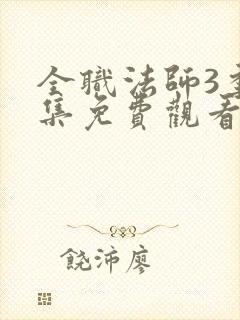 全職法師3季
集免費觀看
饒沛廖